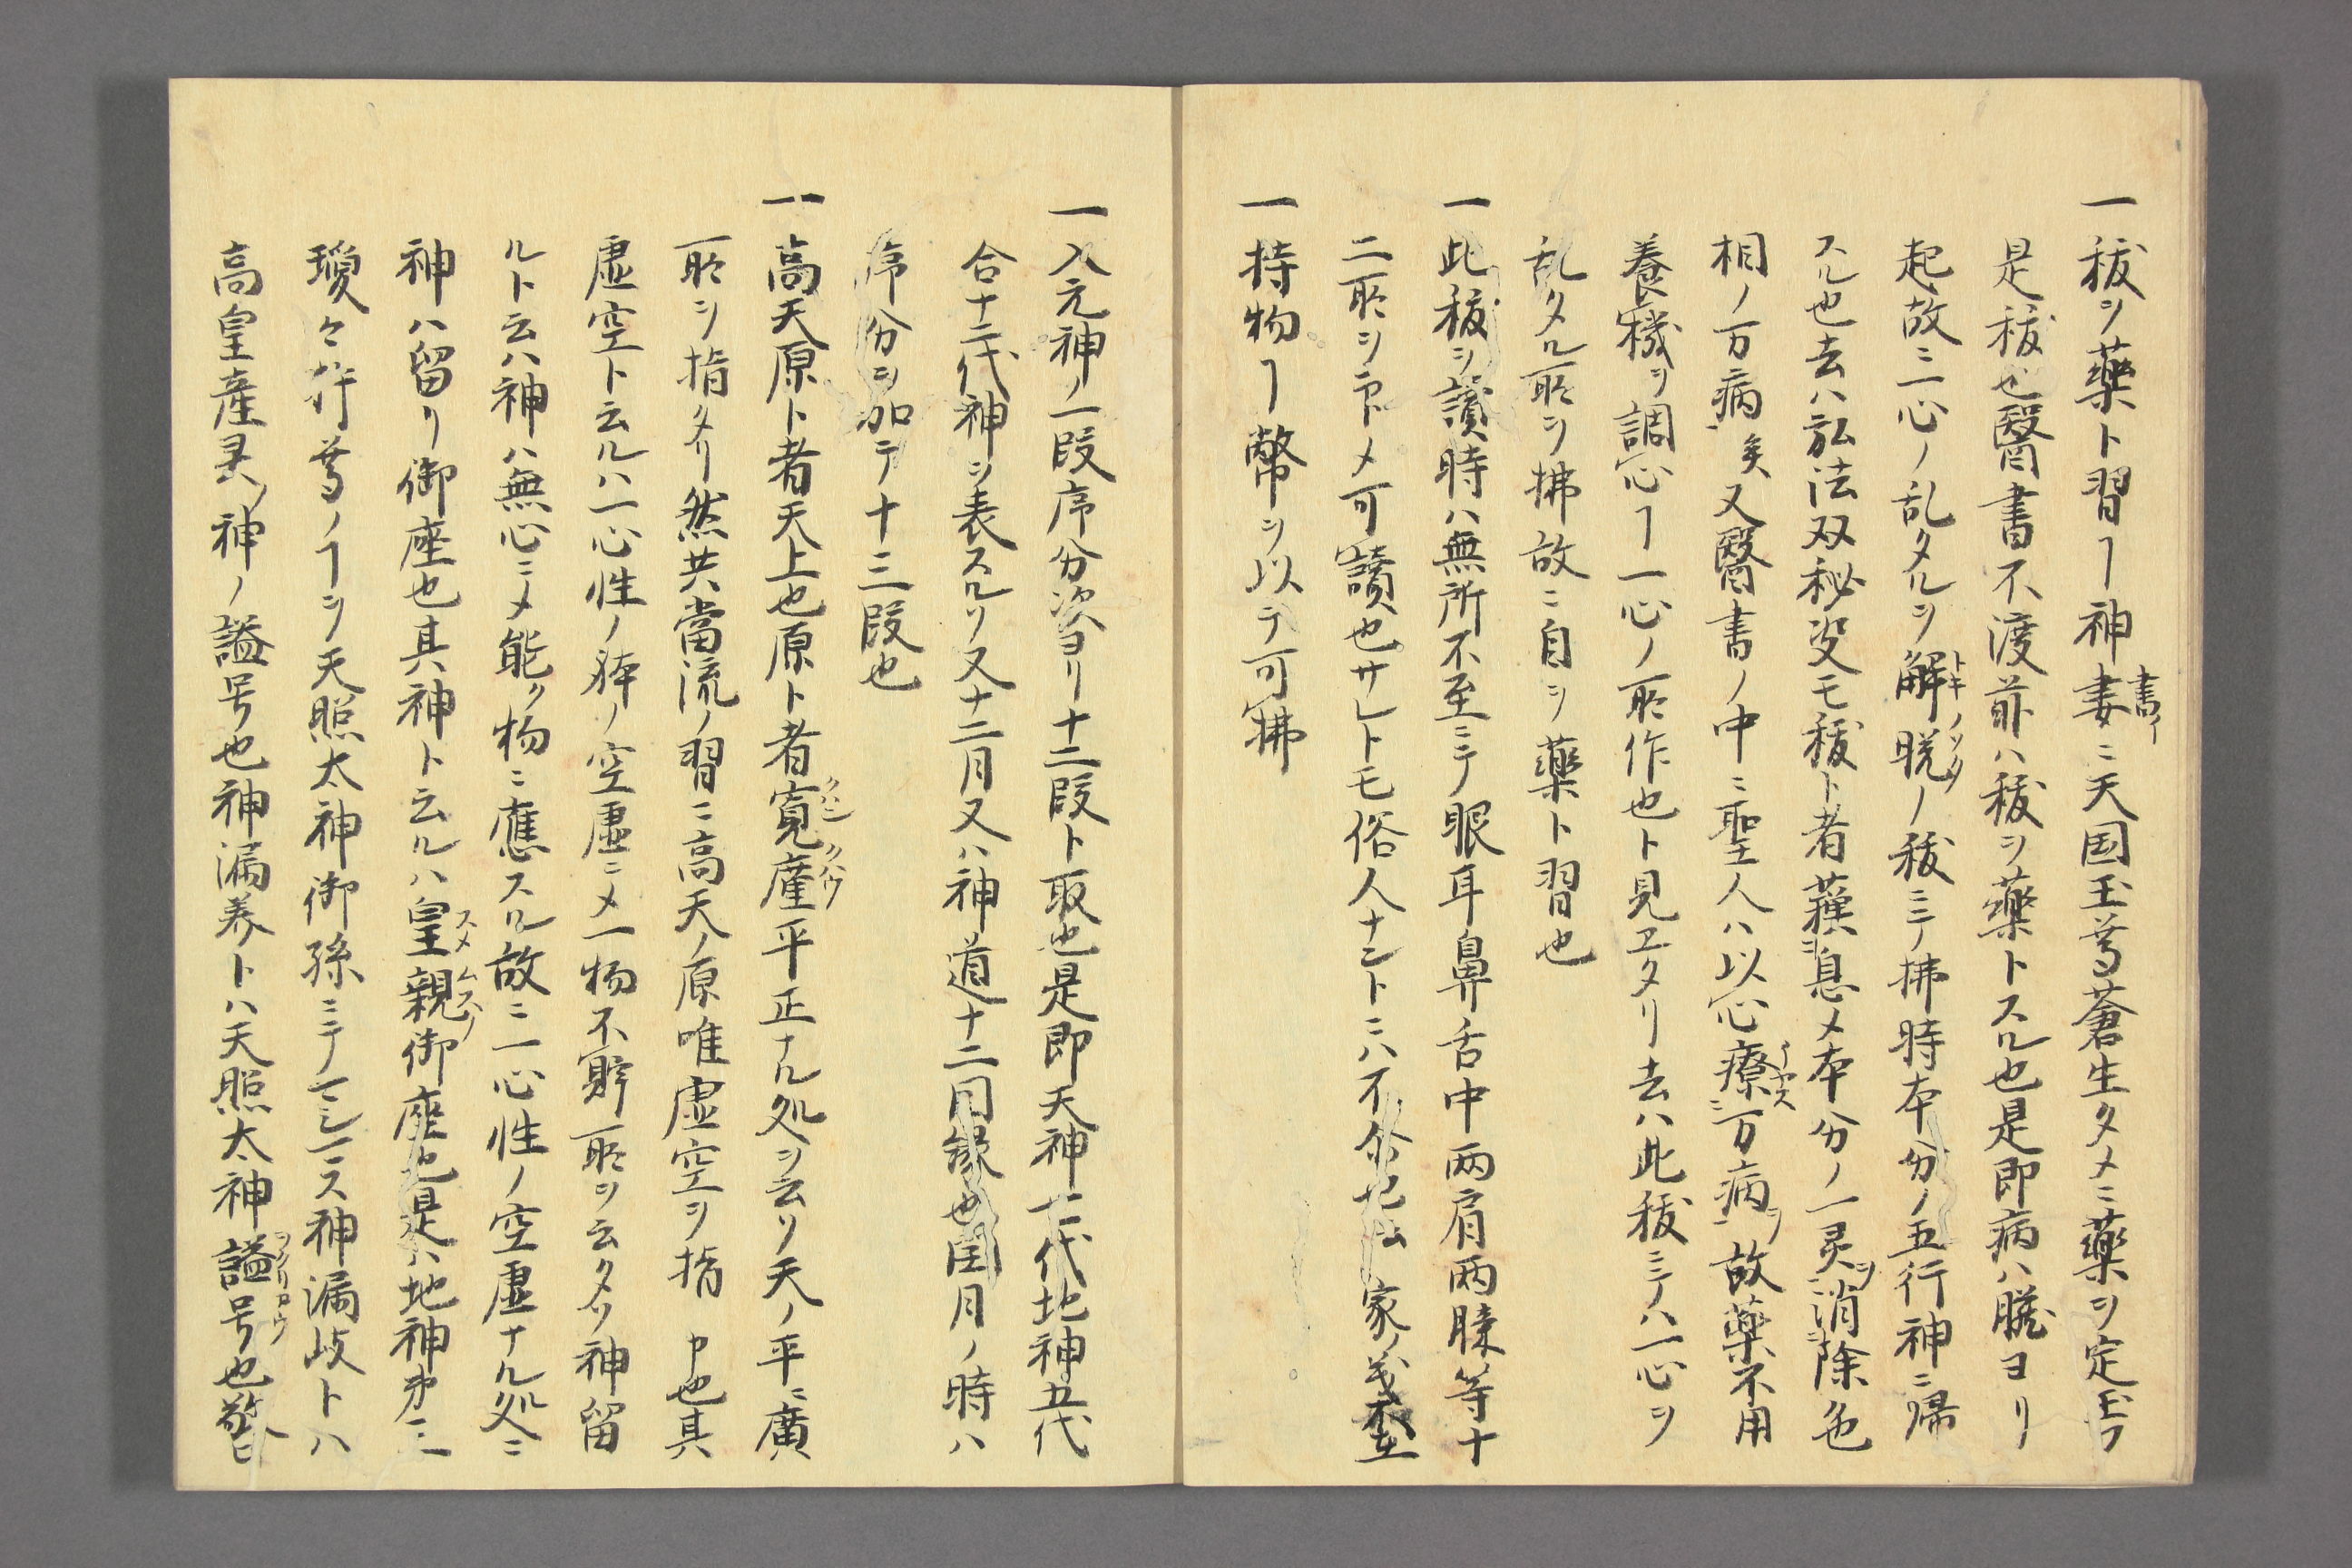 一秡ヲ藥ト習ヿ神妻ニ天国玉尊蒼生タメニ藥ヲ定玉フ
書イ
是秡也醫書不渡前ハ秡ヲ藥トスル也是即病ハ臓ヨリ
起故ニ一心ノ乱タルヲ解脱ノ秡ニテ拂時本分ノ五行神ニ帰
スル也去ハ弘法双秘 モ秡ト者 息メ本分ノ一灵ヲ消除色
相ノ万病矣又醫書ノ中ニ聖人ハ以心療万病ヲ故藥不用
養機ヲ調心ヿ一心ノ所作也ト見エタリ去ハ此秡ニテハ一心ヲ
乱タル所ヲ拂故ニ自ヲ藥ト習也
一此秡ヲ讀時ハ無所不至ニテ眼耳鼻舌中両肩両膝等十
二所ヲ メ可讀也サレトモ俗人ナントニハ不 家ノ
一持物ヿ幣ヲ以テ可拂
一入元神ノ一段序分次ヨリ十二段ト取也是即天神七代地神五代
合十二代神ヲ表スルリ又十二月又ハ神道十二因縁也閏月ノ時ハ
序分ヲ加テ十三段也
一高天原ト者天上也原ト者寛廣平正ナル処ヲ云リ天ノ平ニ廣
クハン クハウ
所ヲ指タリ然共當流ノ習ニ高天ノ原唯虚空ヲ指 也其
虚空ト云ルハ一心性ノ躰ノ空虚ニメ一物不貯所ヲ云タリ神留
ルト云ハ神ハ無心ニメ能ク物ニ應スル故ニ一心性ノ空虚ナル処ニ
神ハ留リ御座也其神ト云ルハ皇親御座也是ハ地神第三
スメ ムスノ
瓊々杵尊ノヿヲ天照太神御孫ニテマシマス神漏岐トハ
高皇産灵ノ神ノ謚号也神漏美トハ天照太神謚号也